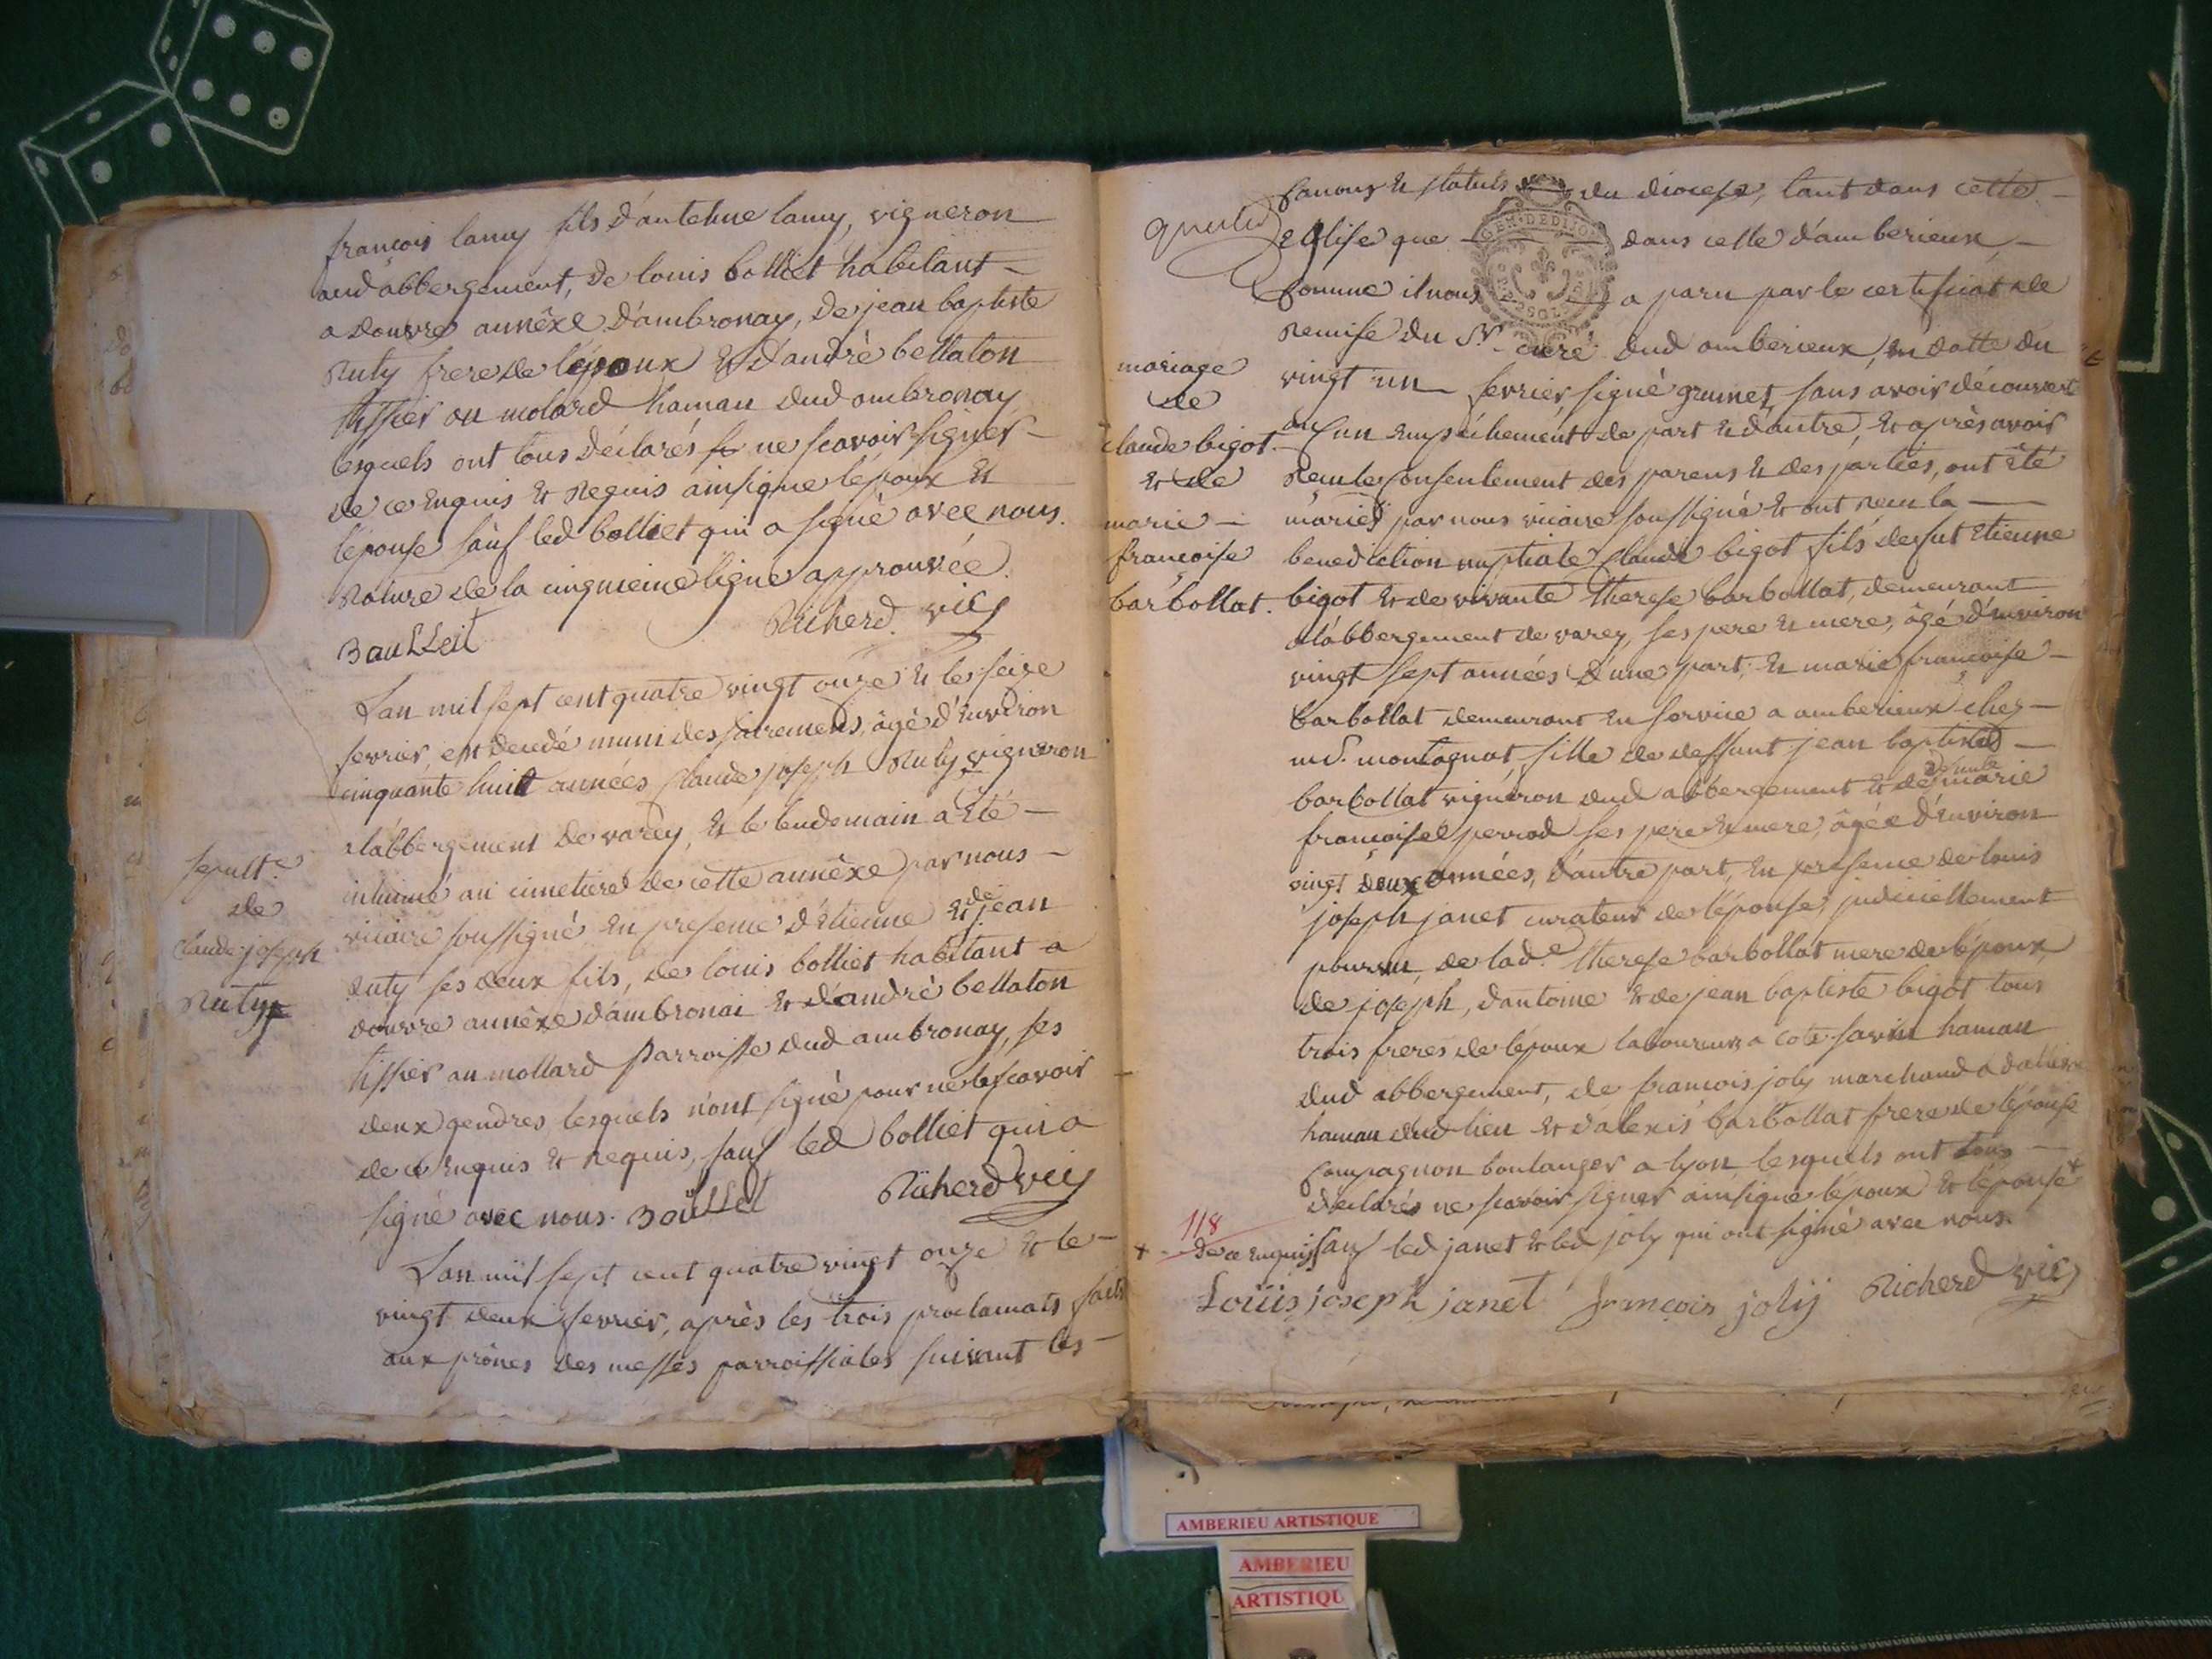 françois lamy fils d'antelme lamy, vigneron
aud abbergement, de louis bolliet habitant
a douvre annêxe d'ambronay, de jean baptiste
Ruty frere de l'époux & d'andrè bellaton
tissier au molard hamau dud ambronay
lesquels ont tous déclarés ne scavoir signer
de ce enquis & requis ainsi que l'époux &
l'épouse sauf led bolliet qui a signé avec nous.
Rature de la cinquieme ligne approuvée.
Baulleit Richerd vic
L'an mil sept cent quatre vingt onze & les seize
fevrier, est decedé muni des sacremens, âgé d'environ
cinquante huit années claude joseph Ruty vigneron
a l'abbergement de varey, & le lendemain a été
inhumé au cimetiere de cette annêxe par nous
vicaire soussigné en presence d'Etienne & de jean
Ruty ses deux fils, de louis bolliet habitant a
douvre annêxe d'ambronai & d'andrè bellaton
tissier au mollard parroisse dud ambronay, ses
deux gendres lesquels n'ont signé pour ne le scavoir
de ce enquis & requis, sauf led bolliet qui a
signé avec nous. Baullet Richerd vic
L'an mil sept cent quatre vingt onze & le
vingt deux fevrier, après les trois proclamats faits
aux prônes des messes parroissiales suivant les
sepult.e
de
claude joseph
Ruty
canons & statuts du diocese, tant dans cette
Eglise que dans celle d'amberieux
comme il nous a paru par le certificat de
Remise du Sr. curé dud amberieux, en datte du
vingt un fevrier, signé grumet, sans avoir découvert
aucun empéchement de part & d'autre, & après avoir
Reçu le consentement des parens & des parties, ont été
mariés par nous vicaire soussigné & ont reçu la
benediction nuptiale claude bigot fils de fut Etienne
bigot & de vivante therese barbollat, demeurant
a l'abbergement de varey, ses pere & mere, âgé d'environ
vingt sept années d'une part, & marie françoise
barbollat demeurant en service a amberieux chez
mr. montagnat, fille de deffunt jean baptiste
barbollat vigneron dud abbergement & de marie
françoise perrod ses pere & mere, âgée d'environ
vingt deux années, d'autre part, en presence de louis
joseph janet curateur de l'épouse, judiciellement
pourvu, de lad.e therese barbollat mere de l'époux
de joseph, d'antoine & de jean baptiste bigot tous
trois freres de l'époux laboureurs a côte-savin hamau
dud abbergement, de françois joly marchand a
hamau dud lieu & d'alexis barbollat frere de l'épouse
compagnon boulanger a lyon lesquels ont tous
declarés ne scavoir signer ainsi que l'époux & l'épouse +
118
+ de ce enquis sauf led janet & led joly qui ont signé avec nous.
Loüis joseph janet françois jolÿ Richerd vic
mariage
de
claude bigot
& de
marie
françoise
barbollat.
AMBERIEU ARTISTIQUE
AMBERIEU
ARTISTIQU